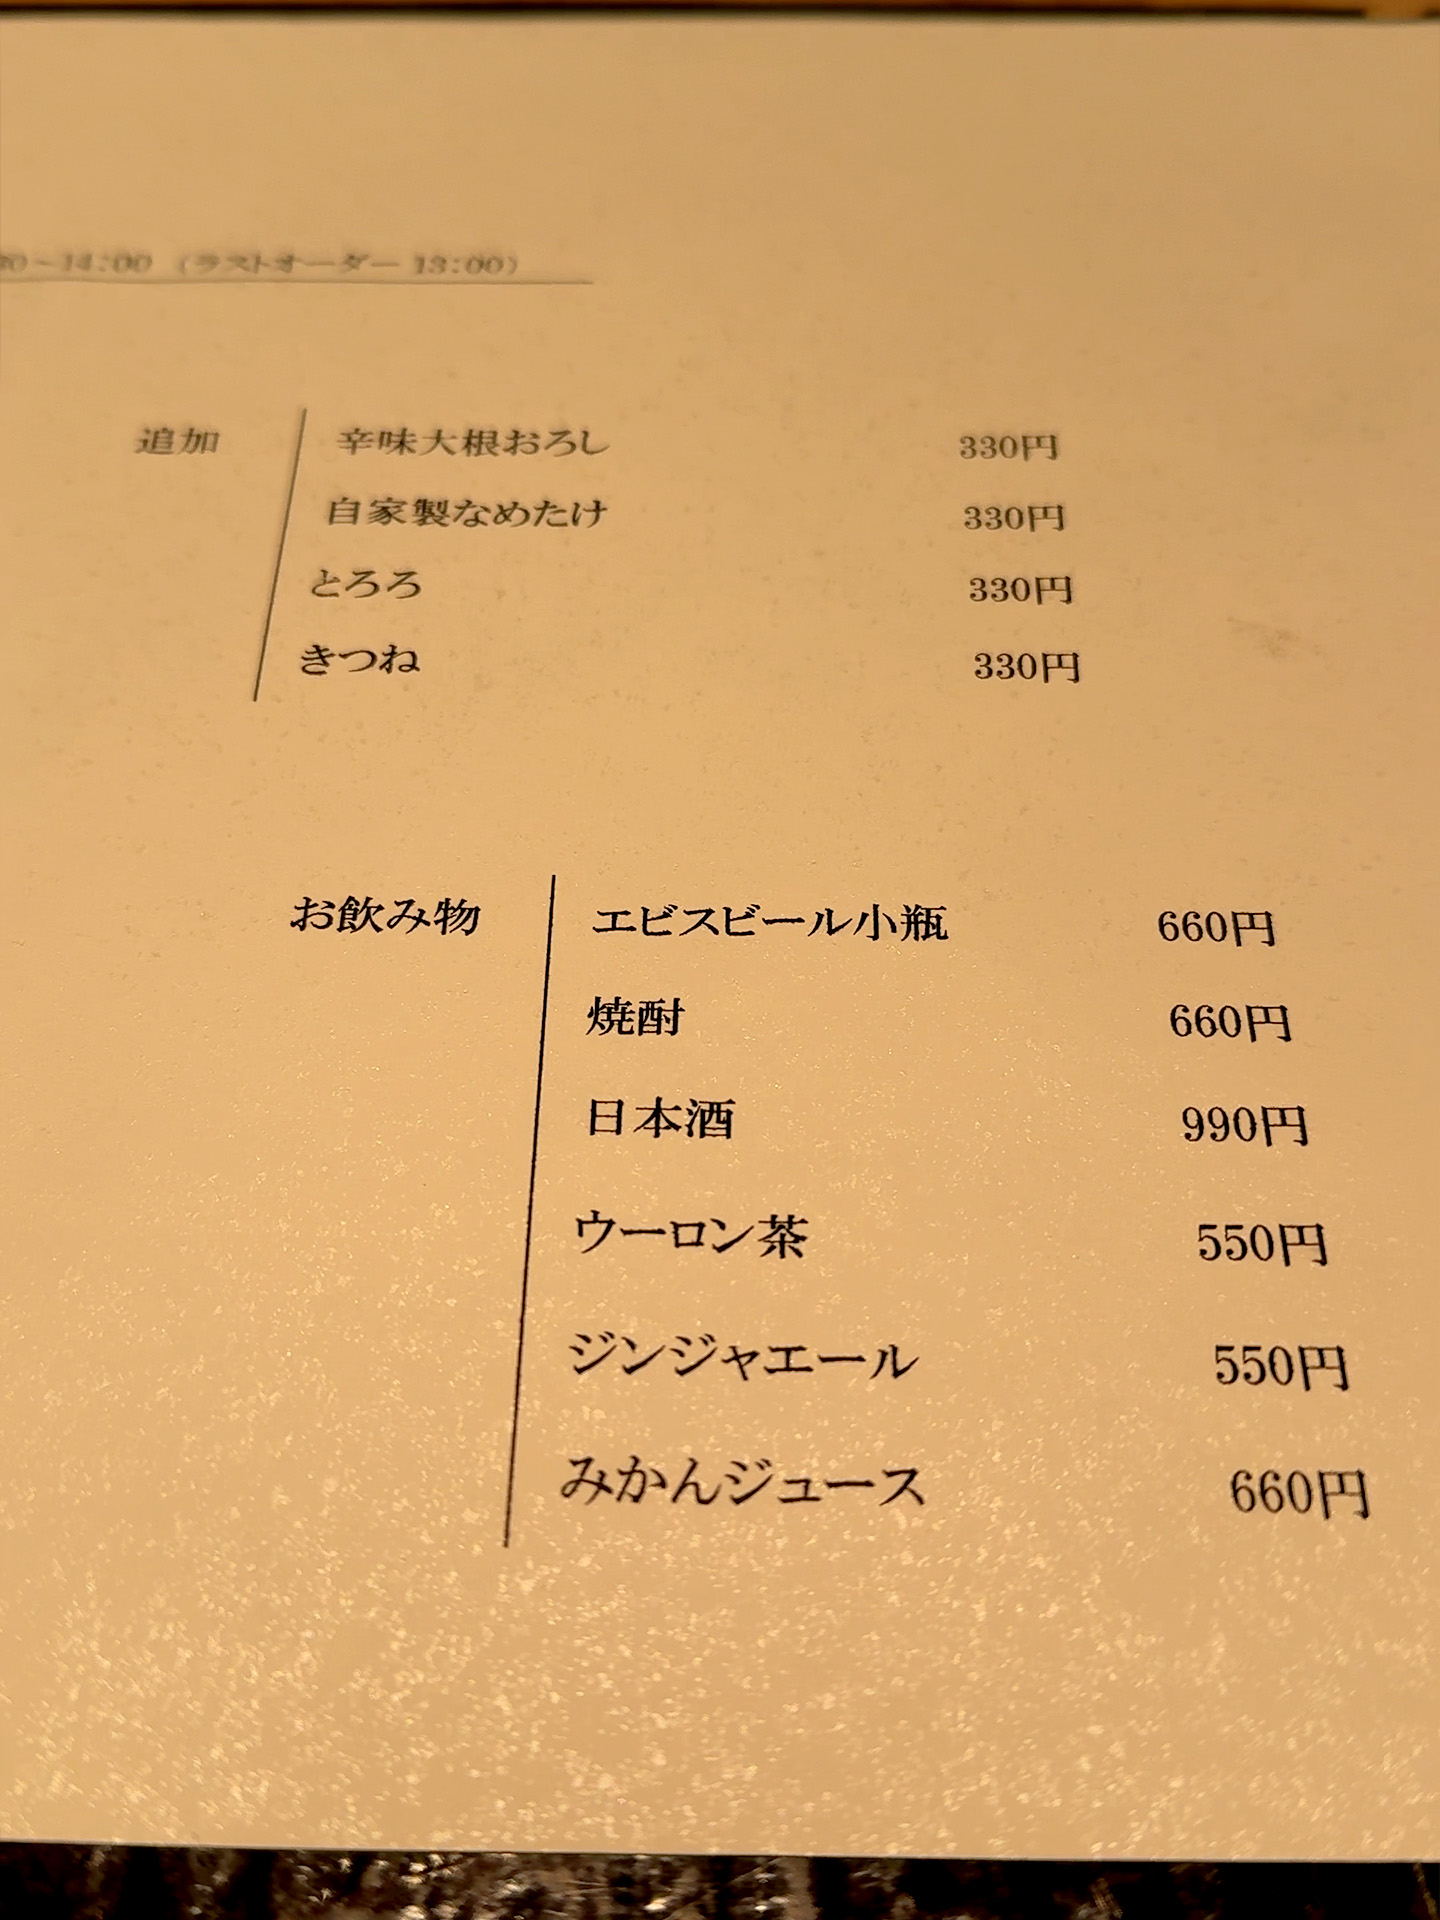 ~14:00 (ラストオーダー 13:00)
追加 辛味大根おろし 330円
自家製なめたけ 330円
とろろ 330円
きつね 330円
お飲み物 エビスビール小瓶 660円
焼酎 660円
日本酒 990円
ウーロン茶 550円
ジンジャエール 550円
みかんジュース 660円